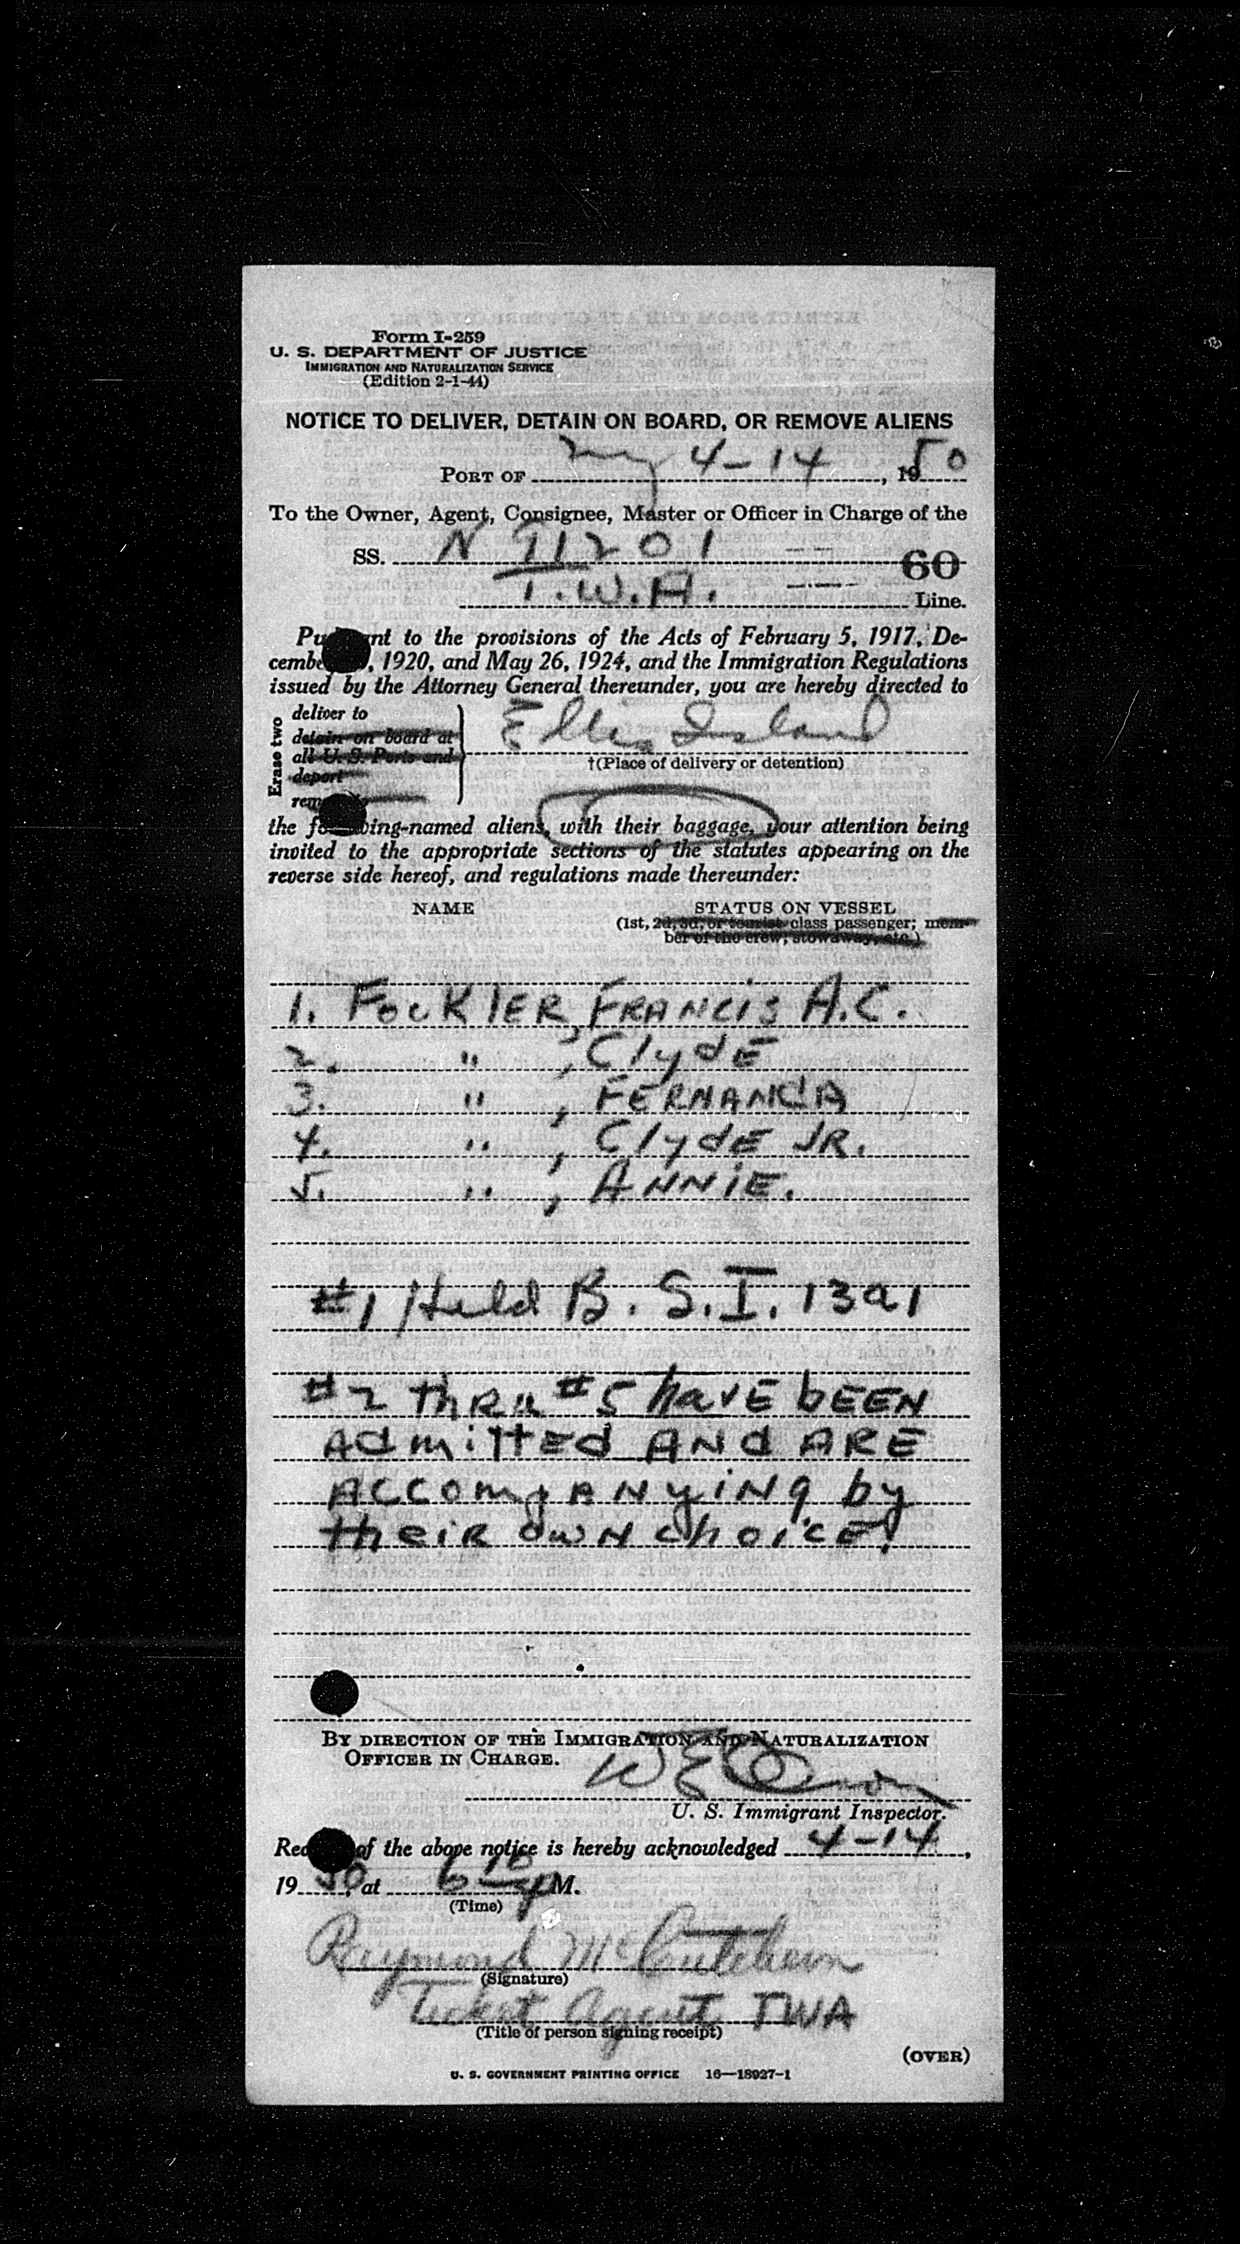 Form I-259
U. S. DEPARTMENT OF JUSTICE
IMMIGRATION AND NATURALIZATION SERVICE
(Edition 2-1-44)
NOTICE TO DELIVER, DETAIN ON BOARD, OR REMOVE ALIENS
PORT OF ny 4-14, 1950
To the Owner, Agent, Consignee, Master or Officer in Charge of the
SS. N 91201 60
T.W.A. Line.
Pu nt to the provisions of the Acts of February 5, 1917, De-
cembe , 1920, and May 26, 1924, and the Immigration Regulations
issued by the Attorney General thereunder, you are hereby directed to
Erase two
deliver to
detain on board at
all U. S. Ports and
deport
rem
Ellis Island
†(Place of delivery or detention)
the f wing-named aliens, with their baggage, your attention being
invited to the appropriate sections of the statutes appearing on the
reverse side hereof, and regulations made thereunder:
NAME STATUS ON VESSEL
(1st, 2d, 3d, or tourist class passenger; mem-
ber of the crew; stowaway, etc.)
1. FOCKLER, FRANCIS A.C.
2. " , ClydE
3. " , FERNANdA
4. " , ClydE JR.
5. " , ANNiE.
#1 Held B. S. I. 13a1
#2 thRu #5 havE bEEN
AdmittEd ANd ARE
ACCompANyiNg by
theiR owN choicE.
BY DIRECTION OF THE IMMIGRATION AND NATURALIZATION
OFFICER IN CHARGE.
U. S. Immigrant Inspector.
Rec of the above notice is hereby acknowledged 4-14,
1950, at 6 10 PM.
(Time)
Raymond McCutcheon
(Signature)
Ticket Agent TWA
(Title of person signing receipt)
(OVER)
U. S. GOVERNMENT PRINTING OFFICE 16—18927-1